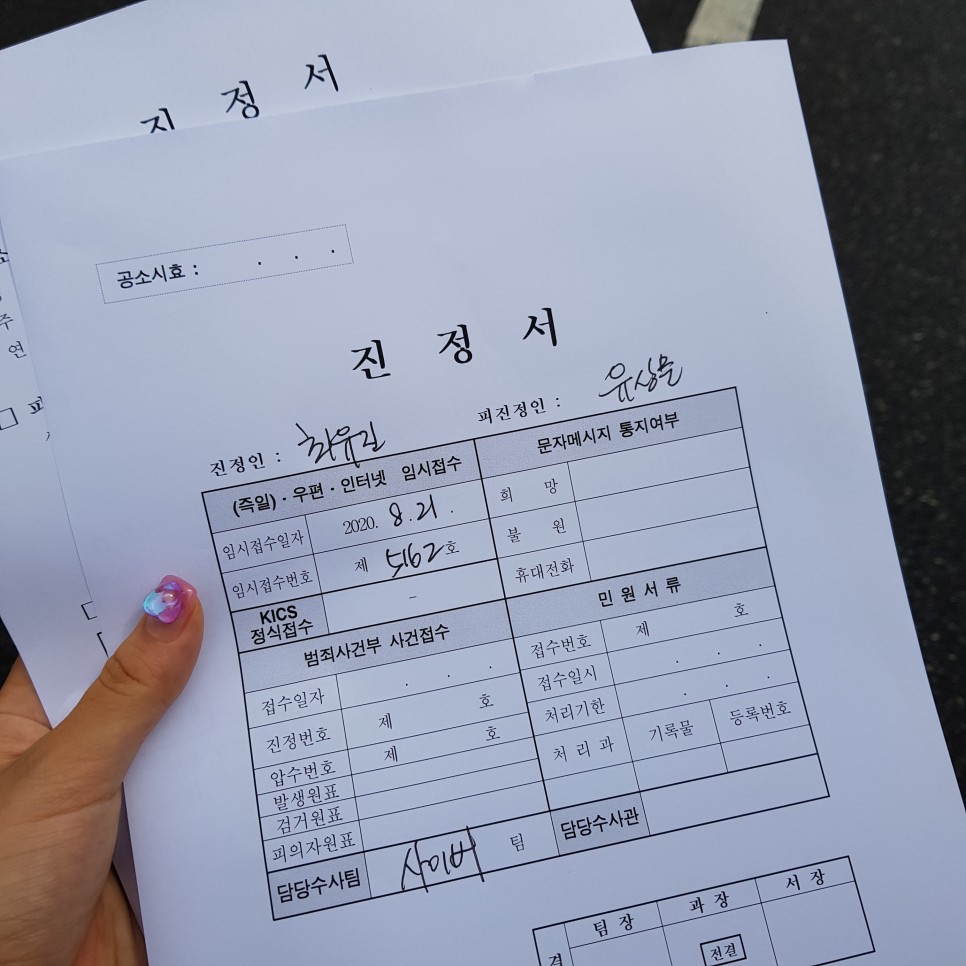 진 정 서
공소시효 : . . .
진 정 서
진정인 : 최유진 피진정인 :
(즉일)·우편·인터넷 임시접수 문자메시지 통지여부
임시접수일자 2020. 8. 21. 희 망
임시접수번호 제 5162호 불 원
KICS 휴대전화
정식접수 - 민 원 서 류
범죄사건부 사건접수 접수번호 제 호
접수일자 . . . 접수일시 . . .
진정번호 제 호 처리기한 . . .
압수번호 제 호 처 리 과 기록물 등록번호
발생원표
검거원표
피의자원표
담당수사팀 사이버 팀 담당수사관
결 팀 장 과 장 서 장
전결
주
연
□ 피